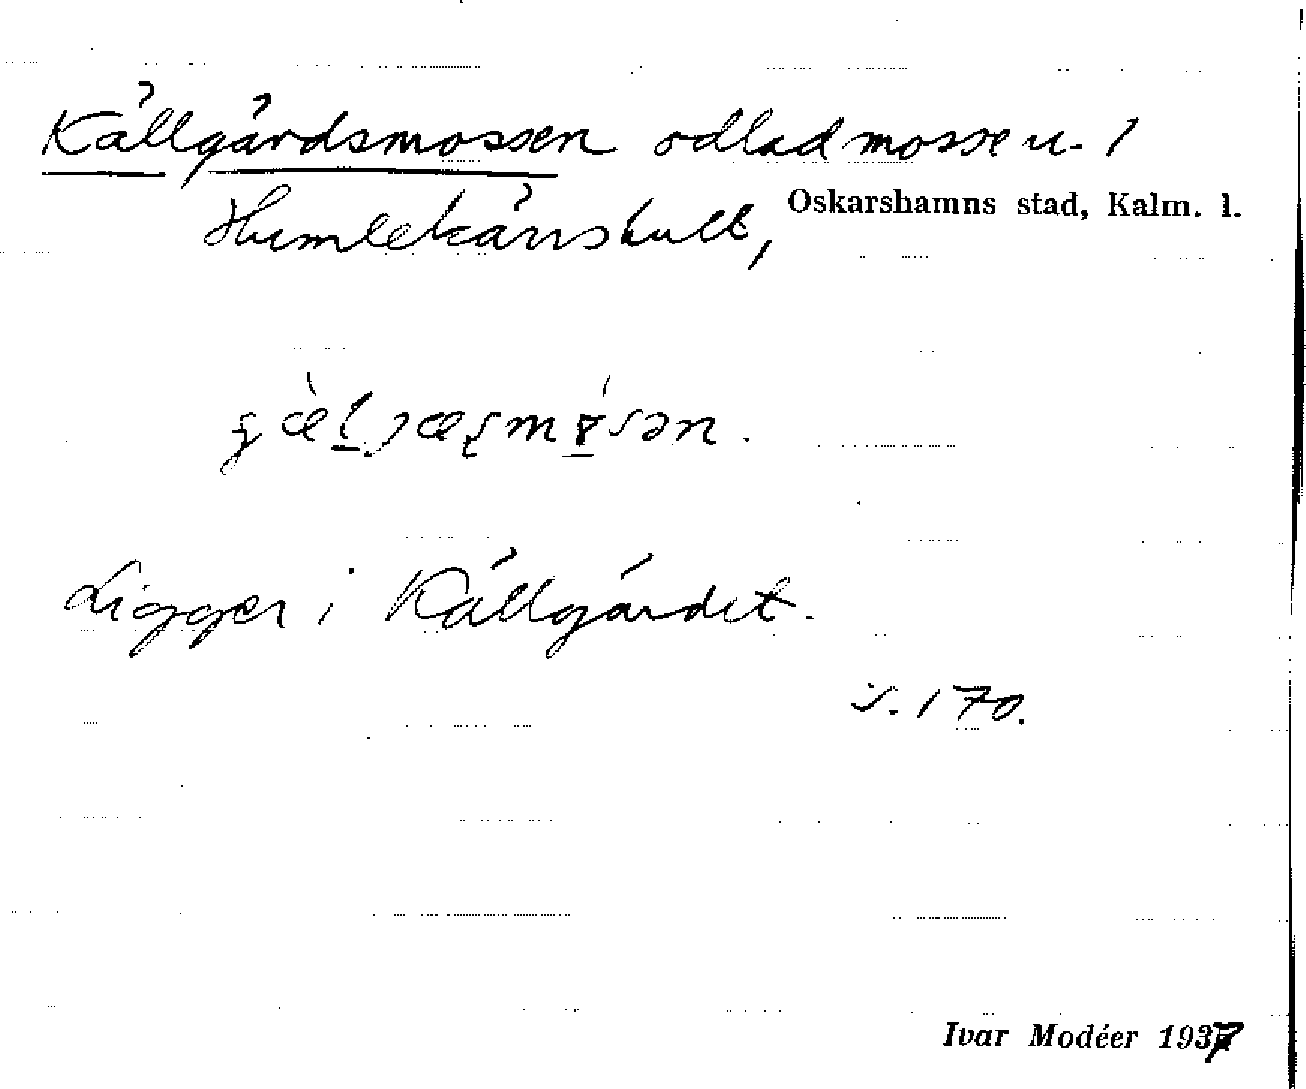 Källgärdsmossen odlad mosse u. 1
Humlekärrshult,
Oskarshamns stad, Kalm. l.
Ligger i Källgärdet.
s. 170.
Ivar Modéer 1937